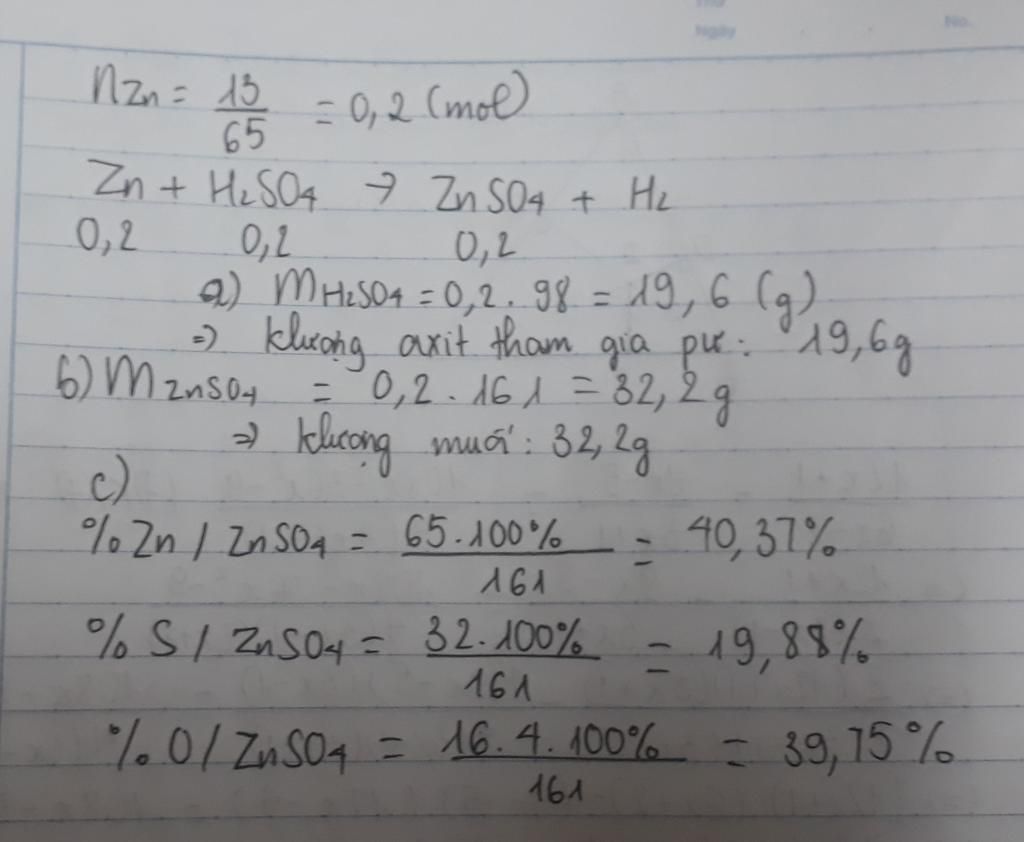 Thứ
Ngày No.
nZn = 13/65 = 0,2 (mol)
Zn + H2SO4 → ZnSO4 + H2
0,2 0,2 0,2
a) mH2SO4 = 0,2 . 98 = 19,6 (g)
=> klượng axit tham gia pư: 19,6g
b) mZnSO4 = 0,2 . 161 = 32,2g
=> klượng muối: 32,2g
c)
%Zn / ZnSO4 = 65.100%/161 = 40,37%
% S / ZnSO4 = 32.100%/161 = 19,88%
%O / ZnSO4 = 16.4.100%/161 = 39,75%